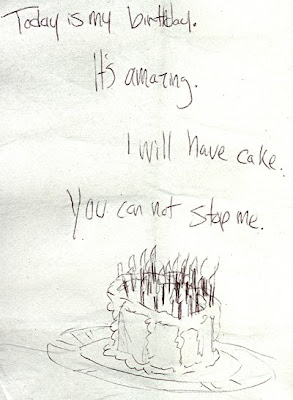 Today is my birthday.
It's amazing.
I will have cake.
You can not stop me.